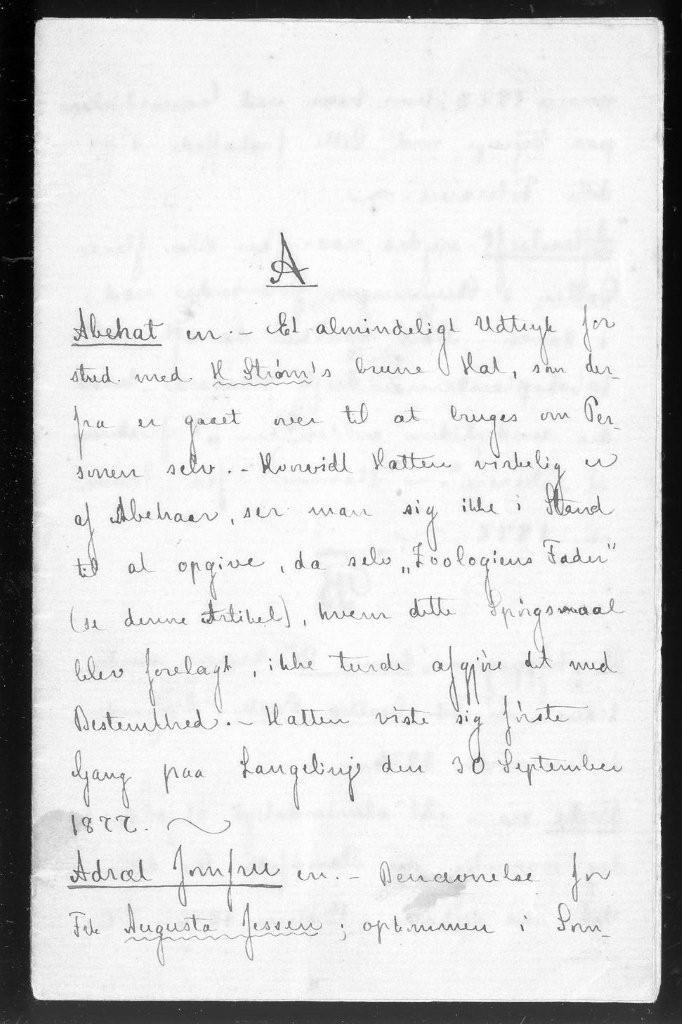 A
Abehat en. - Et almindeligt Udtryk for
stud. med. H Strøm's brune Hat, som der-
fra er gaaet over til at bruges om Per-
sonen selv. - Hvorvidt Hatten virkelig er
af Abehaar, ser man sig ikke i Stand
til at opgive, da selv „Zoologiens Fader"
(se denne Artikel), hvem dette Spørgsmaal
blev forelagt, ikke turde afgjøre det med
Bestemthed. - Hatten viste sig første
Gang paa Langelinje den 30 September
1877.
Adræt Jomfru en. - Benævnelse for
Frk Augusta Jessen; opkommen i Som-